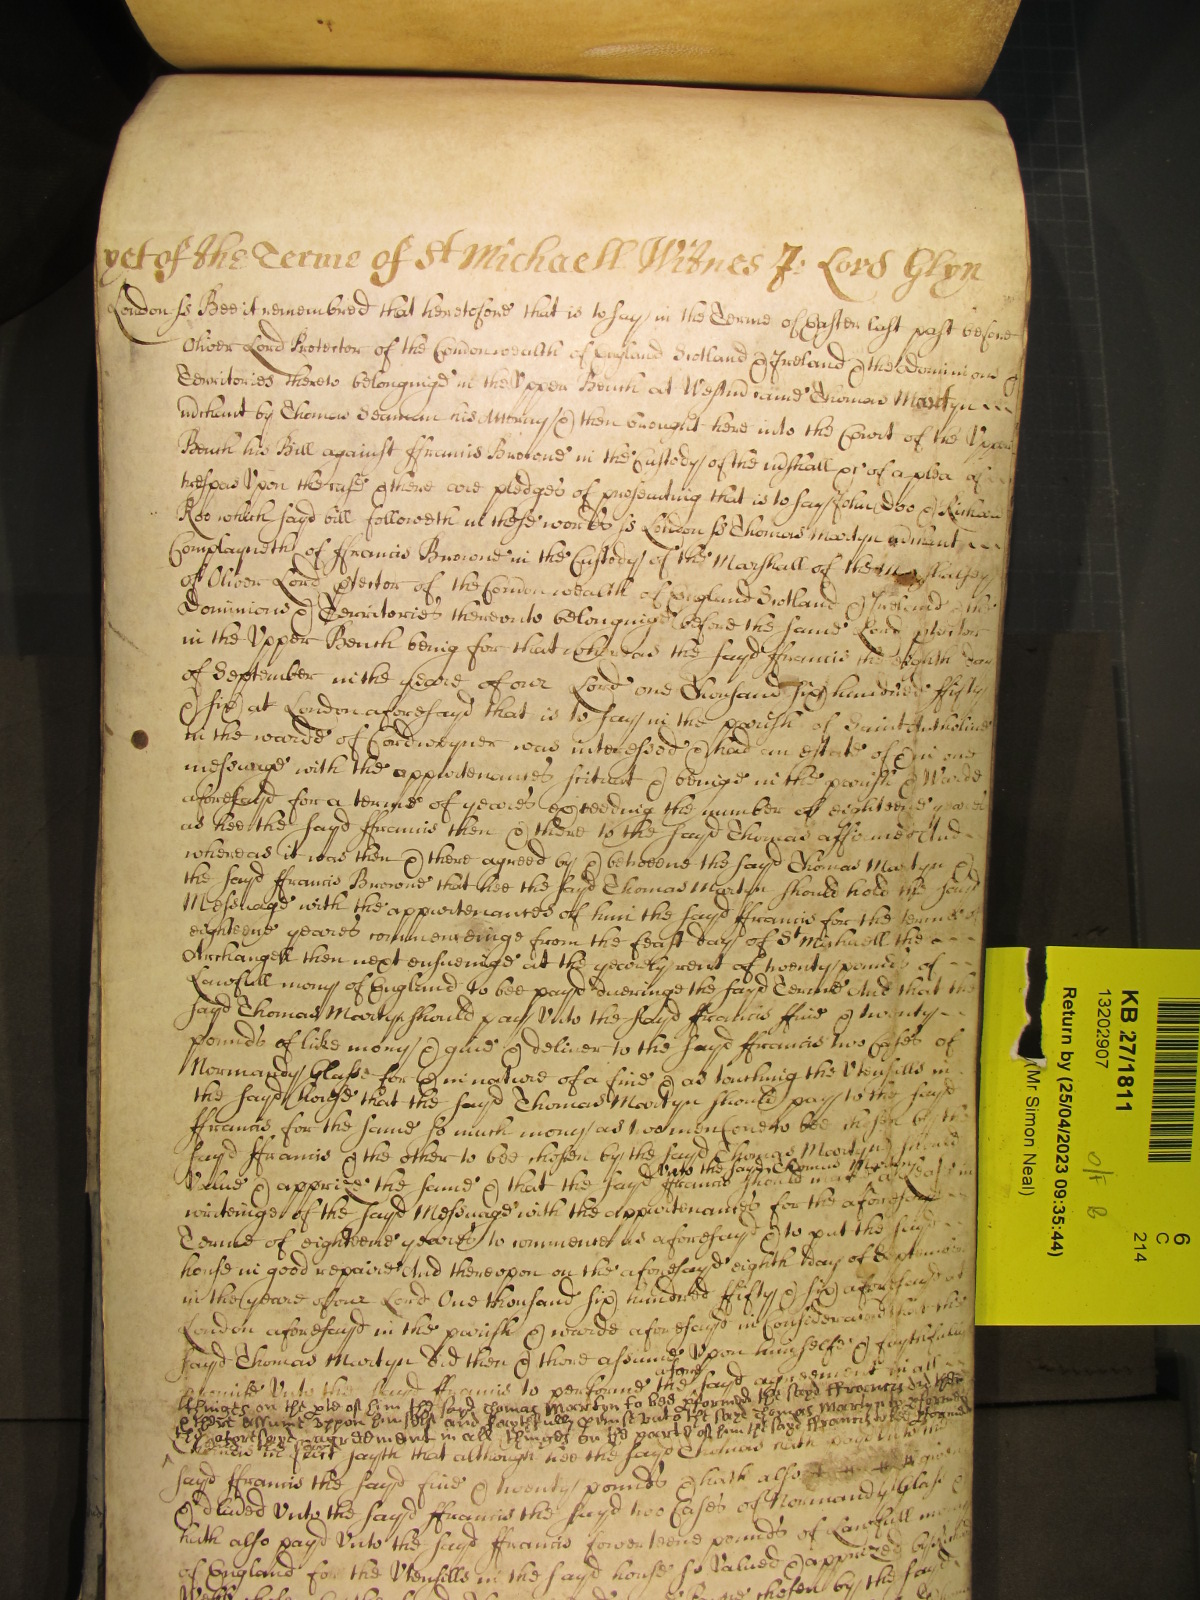 yet of the Terme of St Michaell Witnes J: Lord Glyn
London ss Bee it remembred that heretofore that is to say in the Terme of Easter last past before
Oliver Lord Protector of the Commonwealth of England Scotland & Ireland & the Dominions &
Territories thereto belonginge in the Upper Bench at Westm came Thomas Martyn
mchant by Thomas Seaman his Attorny & then brought here into the Court of the Upper
Bench his Bill against ffrancis Browne in the Custody of the mshall &c of a plea of
trespas Upon the case & there are pledges of prosecuting that is to say John Doo & Richard
Roo which sayd bill followeth in these words ss London ss Thomas Martyn mchant
Complayneth of ffrancis Browne in the Custody of the Marshall of the Marshalsey
of Oliver Lord ptector of the Commonwealth of England Scotland & Ireland & the
Dominions & Territories thereunto belonginge before the same Lord ptector
in the Upper Bench being for that whereas the sayd ffrancis the eighth day
of September in the yeare of our Lord one Thousand six hundred ffifty
& six at London aforesayd that is to say in the parish of Saint Antholins
in the warde of Cordweyner was interessed & had an estate of & in one
messuage with the appurtenances scituat & beinge in the parish & Warde
aforesayd for a terme of yeares exceeding the number of eighteene yeares
as hee the sayd ffrancis then & there to the sayd Thomas affirmed And
whereas it was then & there agreed by & betweene the sayd Thomas Martyn &
the sayd ffrancis Browne that hee the sayd Thomas Martyn should hold the sayd
Messuage with the appurtenances of him the sayd ffrancis for the terme of
eighteene yeares commenceinge from the feast day of St Michaell the
Archangell then next ensueinge at the yearely rent of twenty pounds of
Lawfull mony of England to bee payd dueringe the sayd Terme And that the
sayd Thomas Martyn should pay Unto the sayd ffrancis five & twenty
pounds of like mony & give & deliver to the sayd ffrancis two Cases of
Normandy Glasse for & in nature of a fine & as touching the Utensills in
the sayd house that the sayd Thomas Martyn should pay to the sayd
ffrancis for the same so much mony as two men (one to bee chosen by the
sayd ffrancis & the other to bee chosen by the sayd Thomas Martyn) should
Value & apprize the same & that the sayd ffrancis should make
Unto the sayd Thomas Martyn
writeinge of the sayd Messuage with the appurtenances for the aforesayd
Terme of eighteene yeares to commence as aforesayd & to put the sayd
house in good repaire And thereupon on the aforesayd eighth day of September
in the yeare of our Lord One thousand six hundred ffifty & six aforesayd at
London aforesayd in the parish & warde aforesayd in Consideracon that the
sayd Thomas Martyn did then & there assume Upon himselfe & faythfully
promise Unto the sayd ffrancis to performe the aforesayd agreement in all
thinges on the pte of him the sayd Thomas Martyn to bee pformed the sayd ffrancis did then
& there assume uppon himselfe and faythfully pmise unto the sayd Thomas Martyn to pforme
the aforesayd agreement in all thinges on the parte of him the sayd ffrancis to bee pformed
sayth that although hee the sayd Thomas hath payd Unto the
sayd ffrancis the sayd five & twenty pounds & hath also
& dlivered Unto the sayd ffrancis the sayd two Cases of Normandy Glasse &
hath also payd Unto the sayd ffrancis fowerteene pounds of Lawfull mony
of England for the Utensills in the sayd house so Valued & apprized by
chosen by the sayd
6
C
214
KB 27/1811
13202907
Return by (25/04/2023 09:35:44)
(Mr Simon Neal)